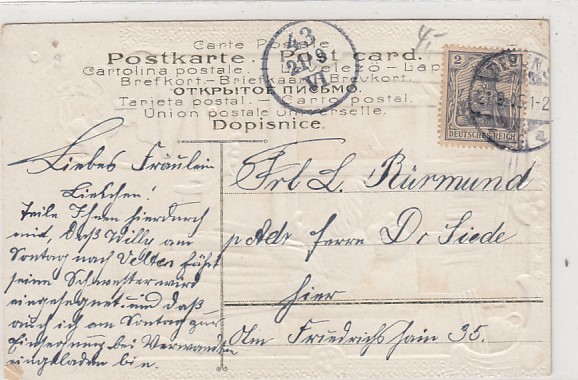 Carte Postale.
Postkarte. Post card.
Cartolina postale.
Brefkort. Briefkaart. Brevkort.
ОТКРЫТОЕ ПИСЬМО.
Tarjeta postal. Carto postal.
Union postale universelle.
Dopisnice.
43
21 9
VI
4,-
2
DEUTSCHES REICH
1-2
a
Liebes Fräulein
Lieschen!
Teile Ihnen hierdurch
mit, daß Willy am
Sonntag nach Velten fährt
seine Schwester wird
eingesegnet und daß
auch ich am Sonntag zur
Einsegnung bei Verwandten
eingeladen bin.
Frl L. Rürmund
p Adr Herrn Dr Siede
hier
Am Friedrichshain 35.